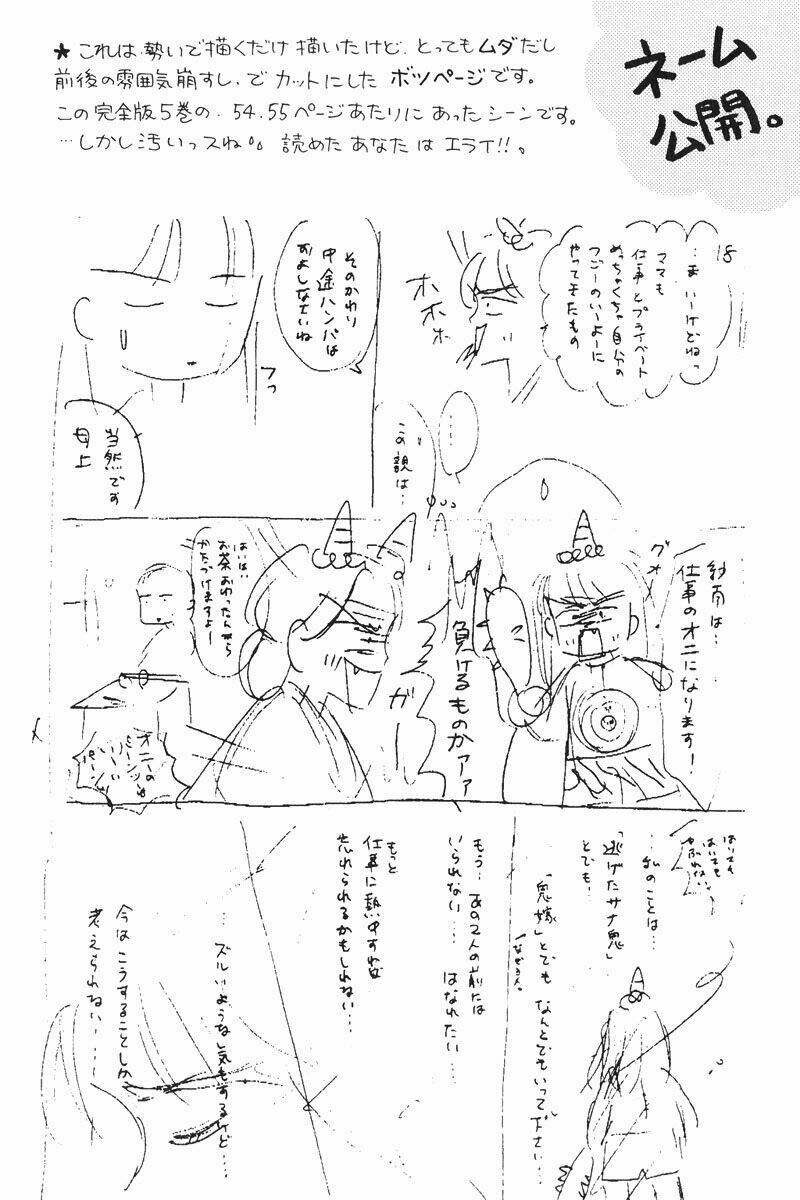 ネーム
公開。
★これは勢いで描くだけ描いたけど、とってもムダだし
前後の雰囲気崩すし、でカットにしたボツページです。
この完全版5巻の、54.55ページあたりにあったシーンです。
…しかし汚いっスね。読めたあなたはエライ!!。
18
…ま いーけどねっ
ママも
仕事とプライベート
めっちゃくちゃ自分の
つごーのいーよーに
やってきたもの
ホホホ
そのかわり
中途ハンパは
およしなさいね
フッ
当然です
母上
……
この親は…
紗南は…
仕事のオニになります!
グオ
負けるものかアァァ
ガ
はいはい
お茶おわったんなら
かたづけますよー
オニーの
パーンツは
いーい
パーンツ
はいても
はいても
やぶれない
…私のことは…
「逃げたサナ鬼」
とでも…
「鬼嫁」とでも なんとでもいって下さい…
なぜヨメ。
もう…あの2人の前には
いられない… はなれたい…
もっと
仕事に熱中すれば
忘れられるかもしれない…
…ズルいような気もするけど…
今はこうすることしか
考えられない…